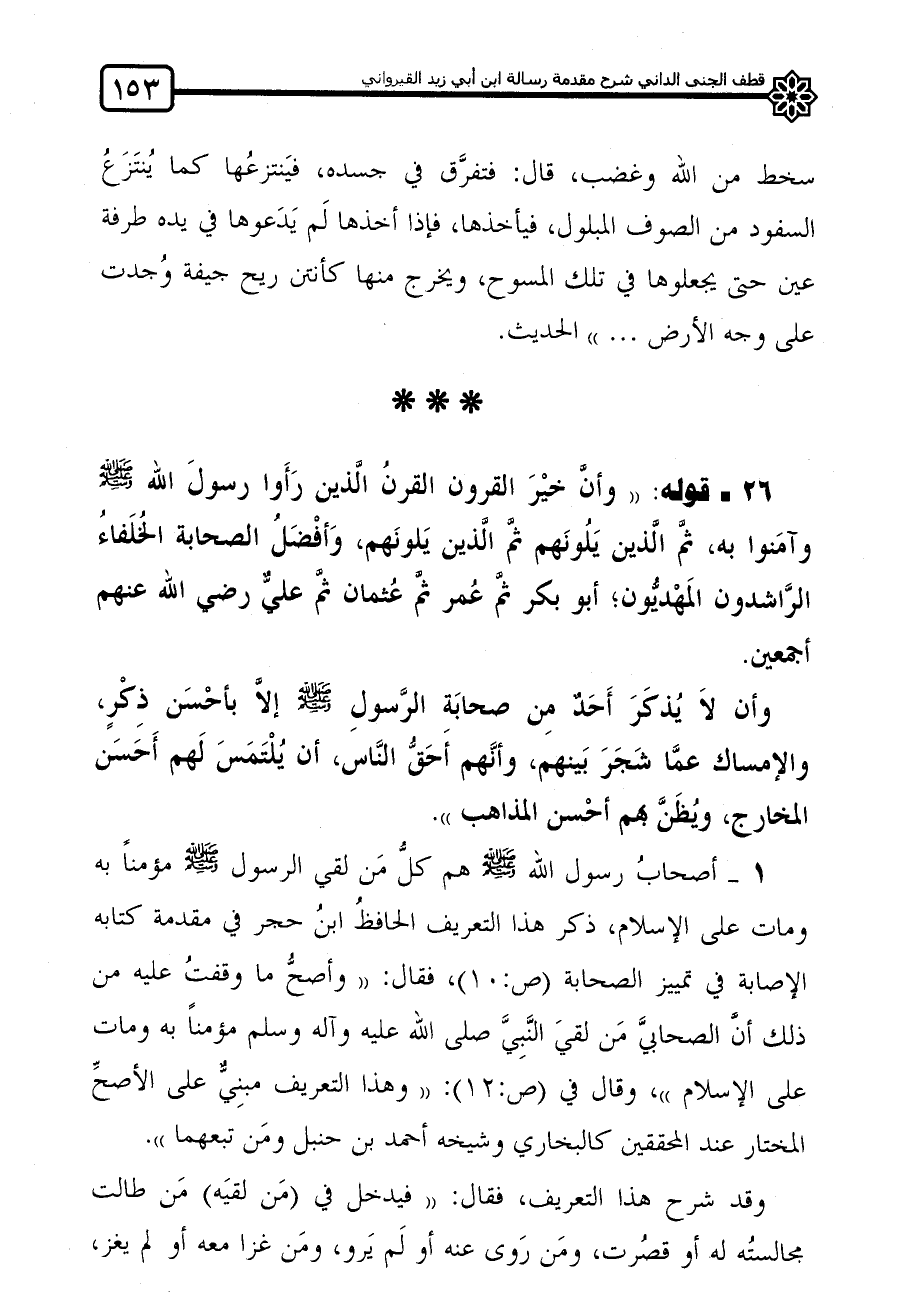 قطف الجنى الداني شرح مقدمة رسالة ابن أبي زيد القيرواني
١٥٣
سخط من الله وغضب، قال: فتفرَّق في جسده، فيَنتزعُها كما يُنتَزَعُ
السفود من الصوف المبلول، فيأخذها، فإذا أخذها لَم يَدَعوها في يده طرفة
عين حتى يجعلوها في تلك المسوح، ويخرج منها كأنتن ريح جيفة وُجدت
على وجه الأرض ... )) الحديث.
*** 
٢٦ ـ قوله: (( وأنَّ خيْرَ القرون القرنُ الَّذين رَأَوا رسولَ الله ﷺ
وآمَنوا به، ثمَّ الَّذين يَلُونَهم ثمَّ الَّذين يَلونَهم، وَأفْضَلُ الصحابة الخُلَفاءُ
الرَّاشدون المَهْديُّون؛ أبو بكر ثمَّ عُمر ثمَّ عُثمان ثمَّ عليٌّ رضي الله عنهم
أجمعين.
وأن لاَ يُذكَرَ أَحَدٌ مِن صحابَةِ الرَّسولِ ﷺ إلاَّ بأحْسَن ذِكْرٍ،
والإمساك عمَّا شَجَرَ بَينهم، وأنَّهم أحَقُّ النَّاس، أن يُلْتَمَسَ لَهم أَحَسَن
المخارج، ويُظَنَّ بهم أحْسن المذاهب )).
١ ـ أصحابُ رسول الله ﷺ هم كلُّ مَن لقي الرسول ﷺ مؤمناً به
ومات على الإسلام، ذكر هذا التعريف الحافظُ ابنُ حجر في مقدمة كتابه
الإصابة في تمييز الصحابة (ص:١٠)، فقال: (( وأصحُّ ما وقفتُ عليه من
ذلك أنَّ الصحابيَّ مَن لقيَ النَّبيَّ صلى الله عليه وآله وسلم مؤمناً به ومات
على الإسلام ))، وقال في (ص:١٢): (( وهذا التعريف مبنِيٌّ على الأصحِّ
المختار عند المحققين كالبخاري وشيخه أحمد بن حنبل ومَن تبعهما )).
وقد شرح هذا التعريف، فقال: (( فيدخل في (مَن لقيَه) مَن طالت
مجالستُه له أو قصُرت، ومَن رَوى عنه أو لَم يَرو، ومَن غزا معه أو لم يغز،